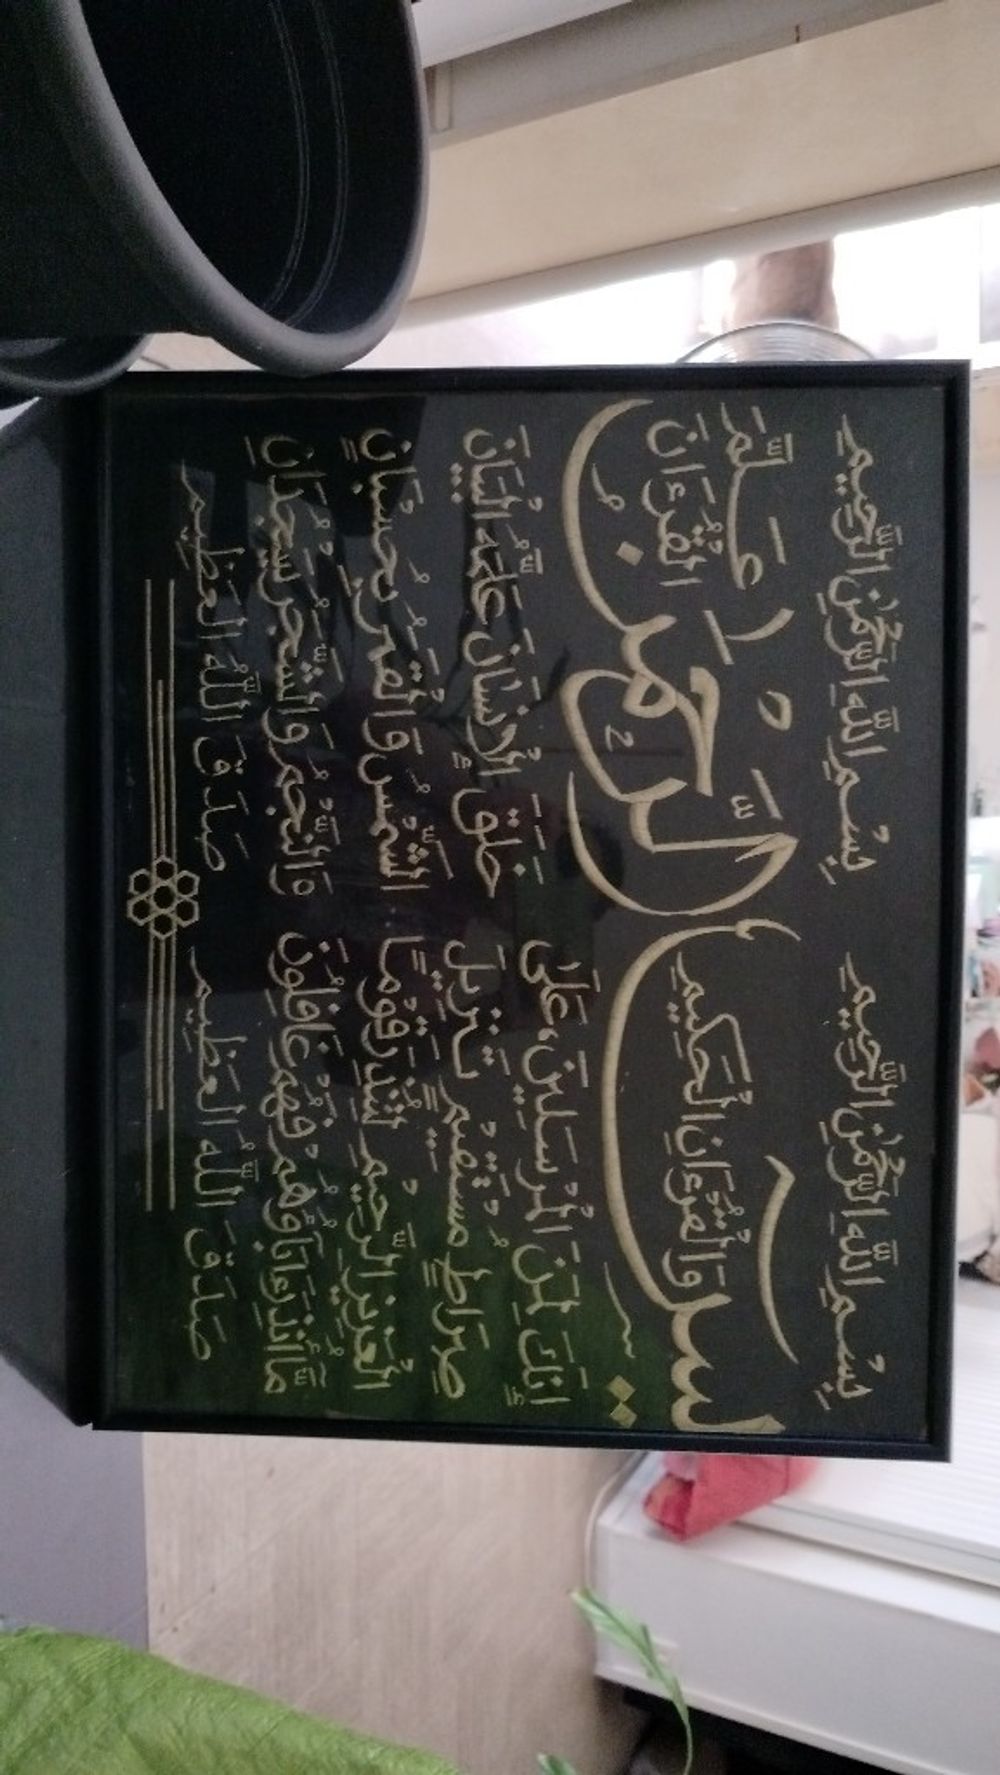 بِسْمِ اللَّهِ الرَّحْمَٰنِ الرَّحِيمِ
يسٓ وَالْقُرْءَانِ الْحَكِيمِ
إِنَّكَ لَمِنَ الْمُرْسَلِينَ عَلَىٰ
صِرَاطٍ مُسْتَقِيمٍ تَنْزِيلَ
الْعَزِيزِ الرَّحِيمِ لِتُنْذِرَ قَوْمًا
مَّا أُنْذِرَ ءَابَاؤُهُمْ فَهُمْ غَافِلُونَ
صَدَقَ اللَّهُ الْعَظِيمُ
بِسْمِ اللَّهِ الرَّحْمَٰنِ الرَّحِيمِ
الرَّحْمَٰنُ عَلَّمَ الْقُرْءَانَ
خَلَقَ الْإِنْسَانَ عَلَّمَهُ الْبَيَانَ
الشَّمْسُ وَالْقَمَرُ بِحُسْبَانٍ
وَالنَّجْمُ وَالشَّجَرُ يَسْجُدَانِ
صَدَقَ اللَّهُ الْعَظِيمُ